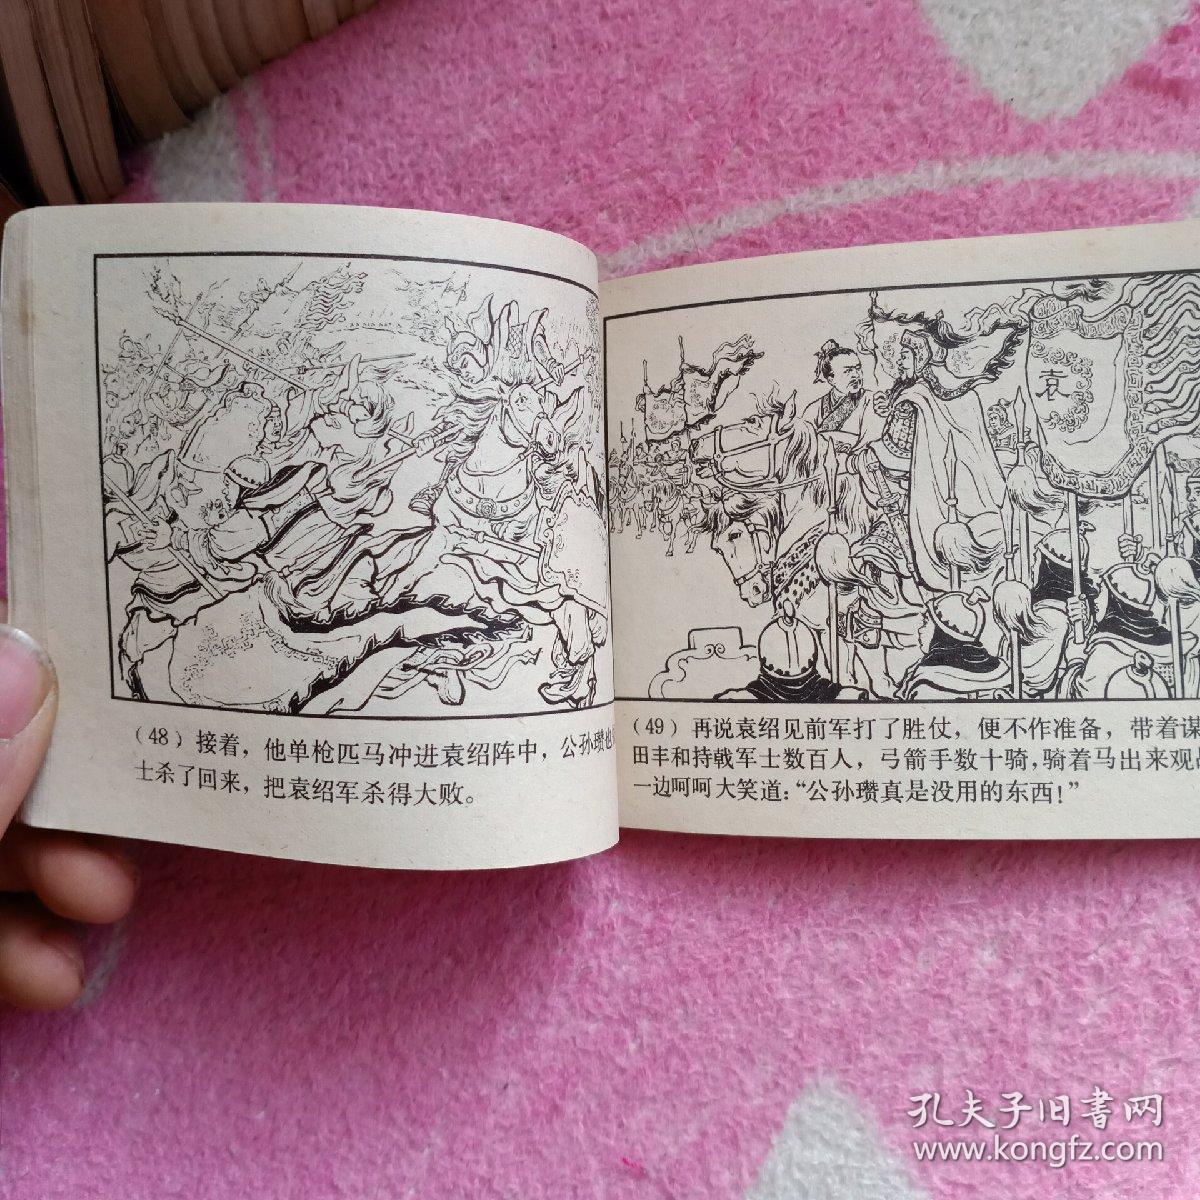 (48) 接着，他单枪匹马冲进袁绍阵中，公孙瓒也
士杀了回来，把袁绍军杀得大败。
袁
(49) 再说袁绍见前军打了胜仗，便不作准备，带着谋
田丰和持戟军士数百人，弓箭手数十骑，骑着马出来观
一边呵呵大笑道：“公孙瓒真是没用的东西！”
孔夫子旧書网
www.kongfz.com